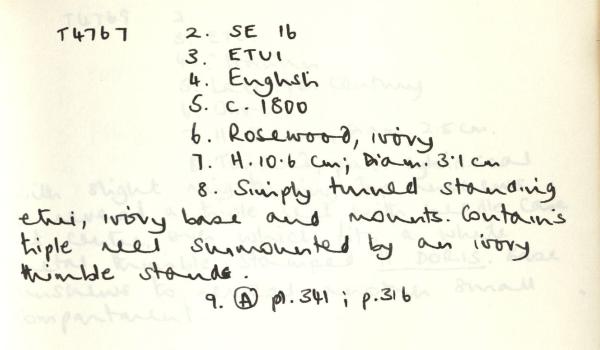 T4767 2. SE 16
3. ETUI
4. English
5. C. 1800
6. Rosewood, ivory
7. H. 10.6 cm; Diam. 3.1 cm
8. Simply turned standing
etui, ivory base and mounts. Contains
triple reel surmounted by an ivory
thimble stands.
9. Ⓐ pl. 341; p. 316